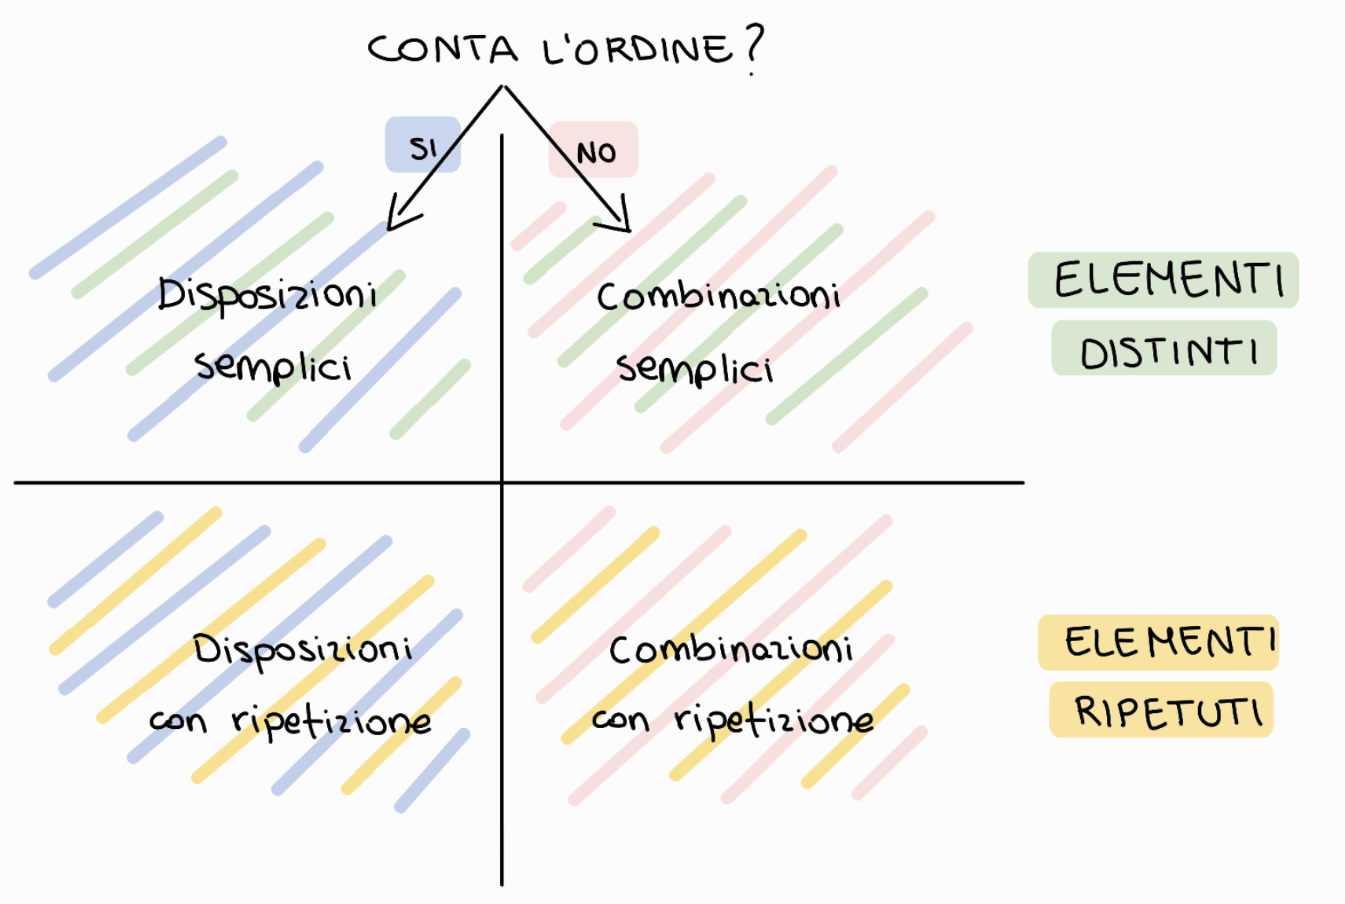 CONTA L'ORDINE?
SI
NO
Disposizioni
semplici
Combinazioni
semplici
ELEMENTI
DISTINTI
Disposizioni
con ripetizione
Combinazioni
con ripetizione
ELEMENTI
RIPETUTI